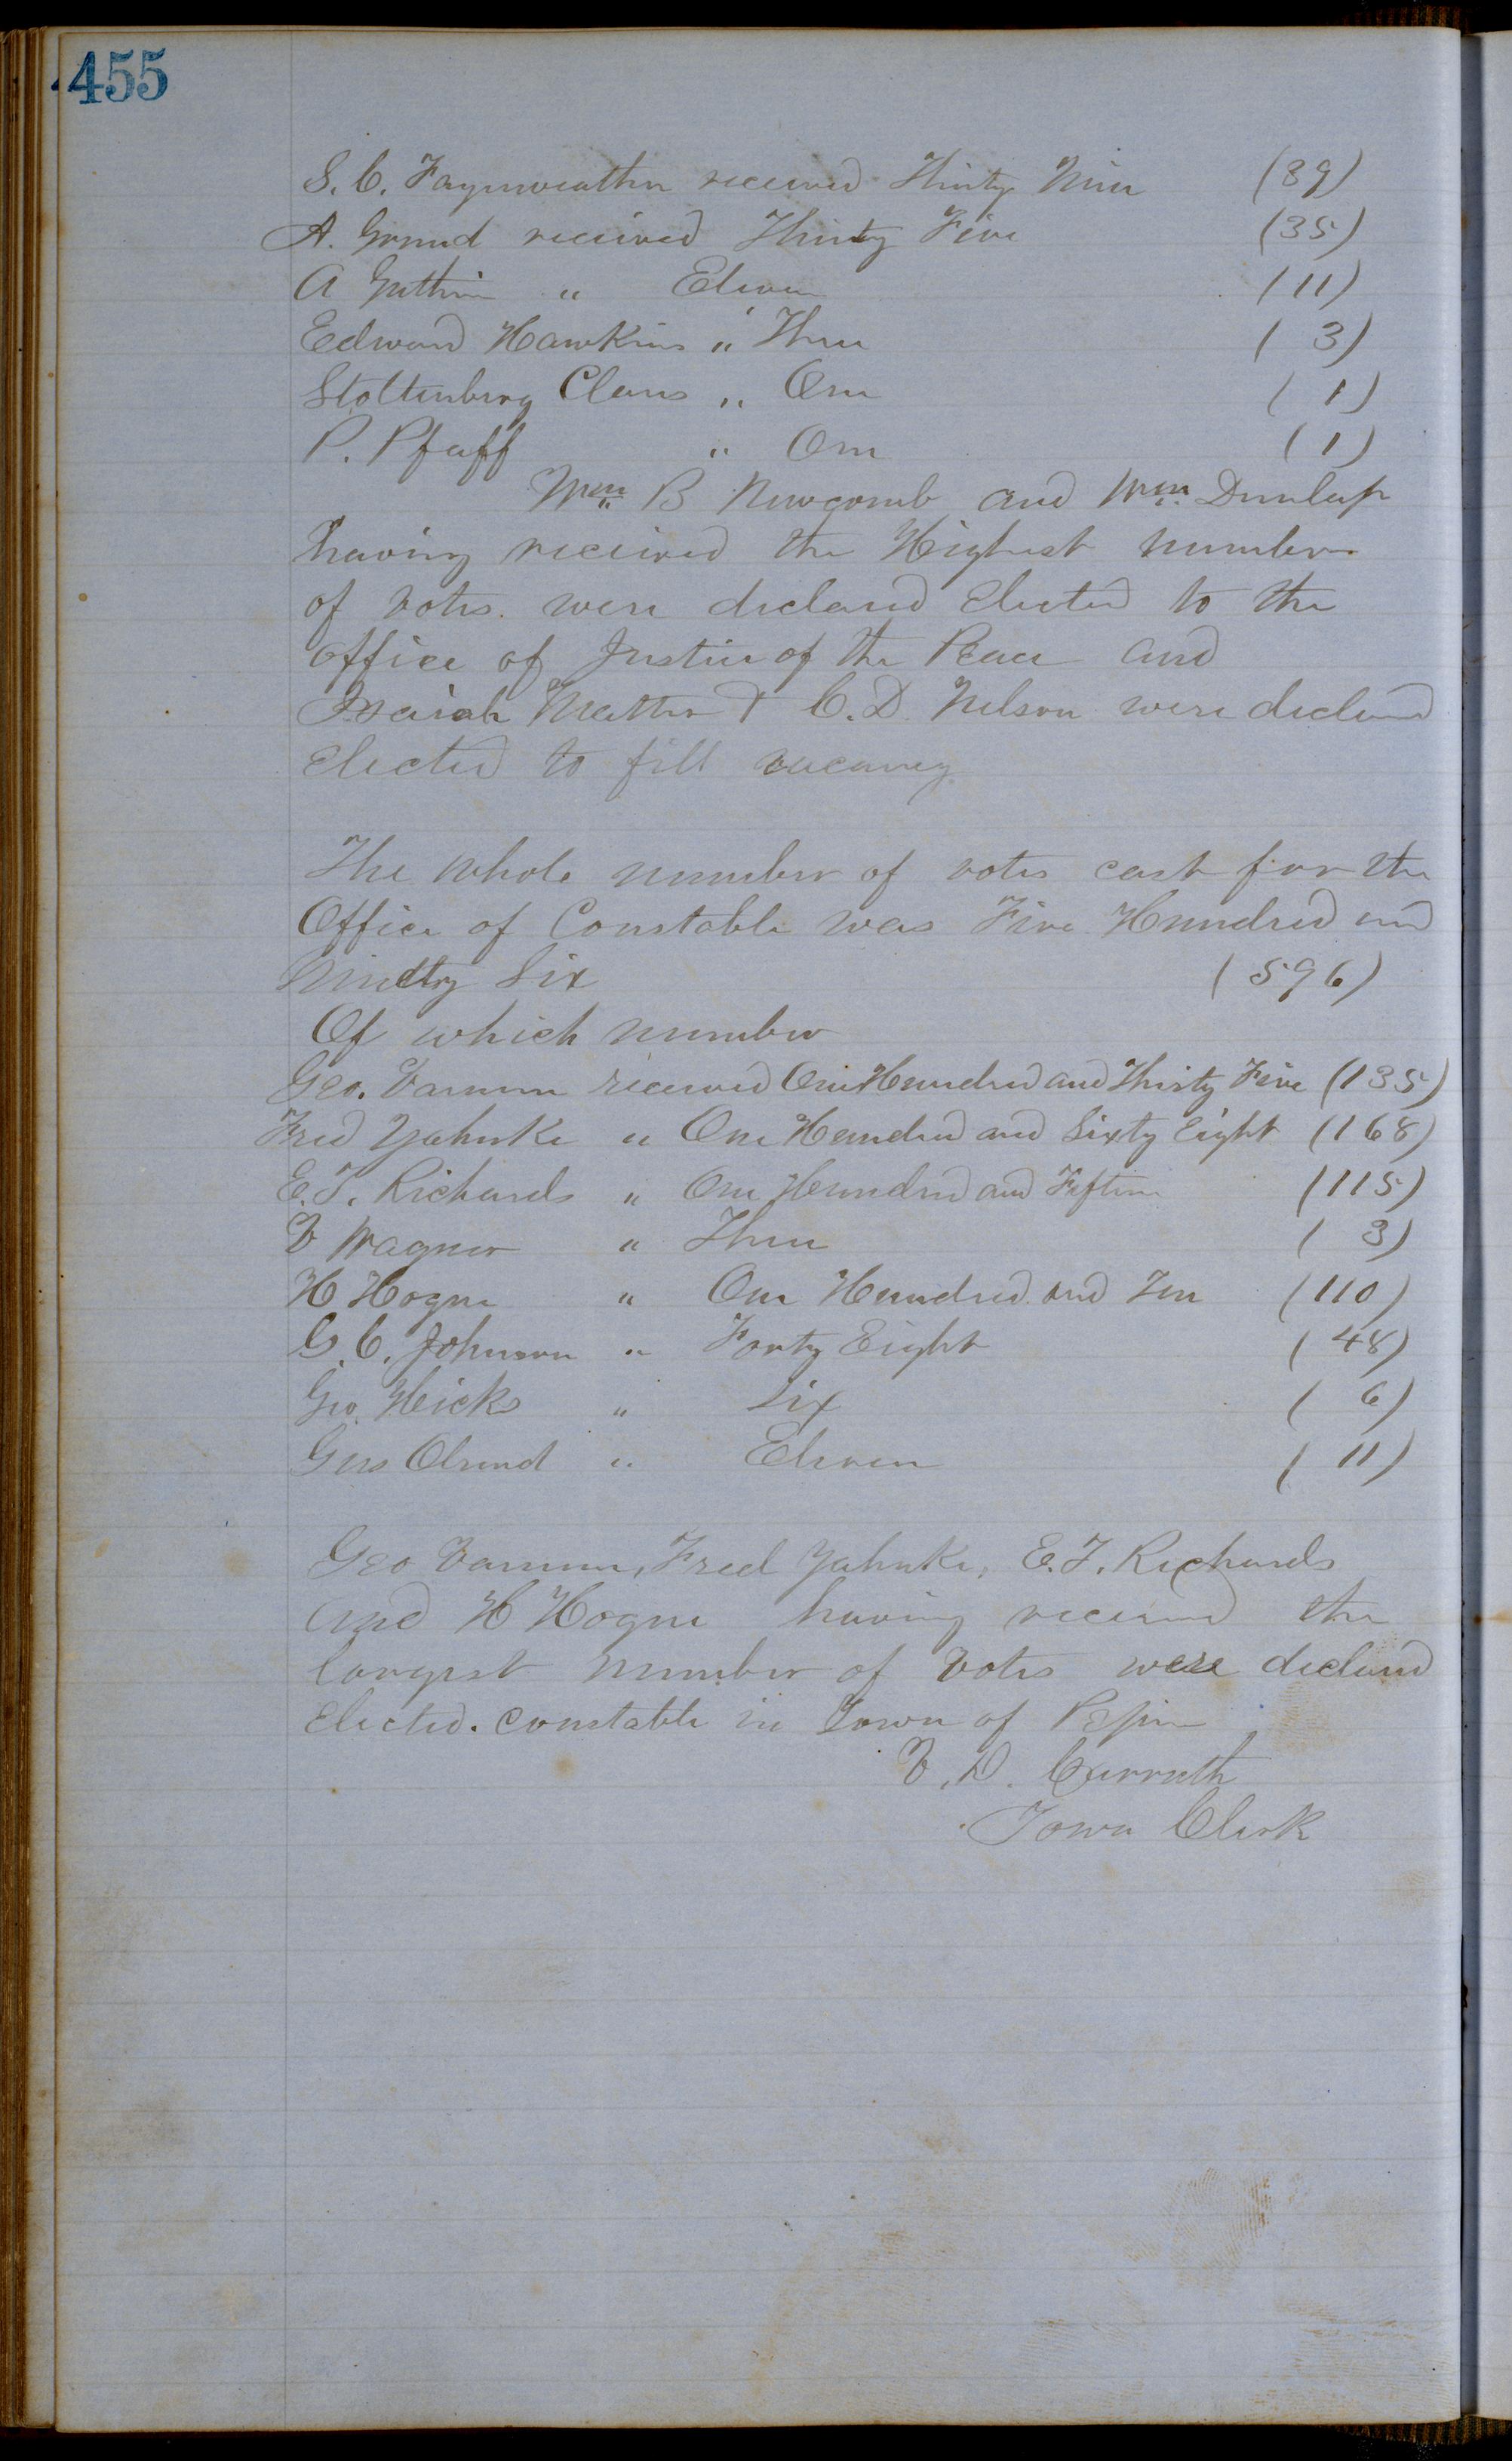 455
S. C. Fayerweather received Thirty Nine (39)
A. Grund received Thirty Five (35)
A Guthrie " Eleven (11)
Edward Hawkins " Three ( 3)
Stoltenberg Claus " One ( 1)
P. Pfaff " One (1)
Wm B Newcomb and Wm Dunlap
having received the Highest number
of votes were declared elected to the
office of Justice of the Peace and
Isaiah Matter & C. D. Nelson were declared
elected to fill vacancy
The whole number of votes cast for the
Office of Constable was Five Hundred and
Ninetty Six (596)
Of which number
Geo. Varnum received One Hundred and Thirty Five (135)
Fred Yahnke " One Hundred and Sixty Eight (168)
E. T. Richards " One Hundred and Fifteen (115)
V Wagner " Three ( 3)
H Hogue " One Hundred and Ten (110)
G. C. Johnson " Forty Eight ( 48)
Geo. Hicks " Six ( 6)
Gus Olund " Eleven ( 11)
Geo Varnum, Fred Yahnke, E. T. Richards
and H Hogue having received the
largest number of votes were declared
Elected. Constable in Town of Pepin
V. D. Carruth
Town Clerk